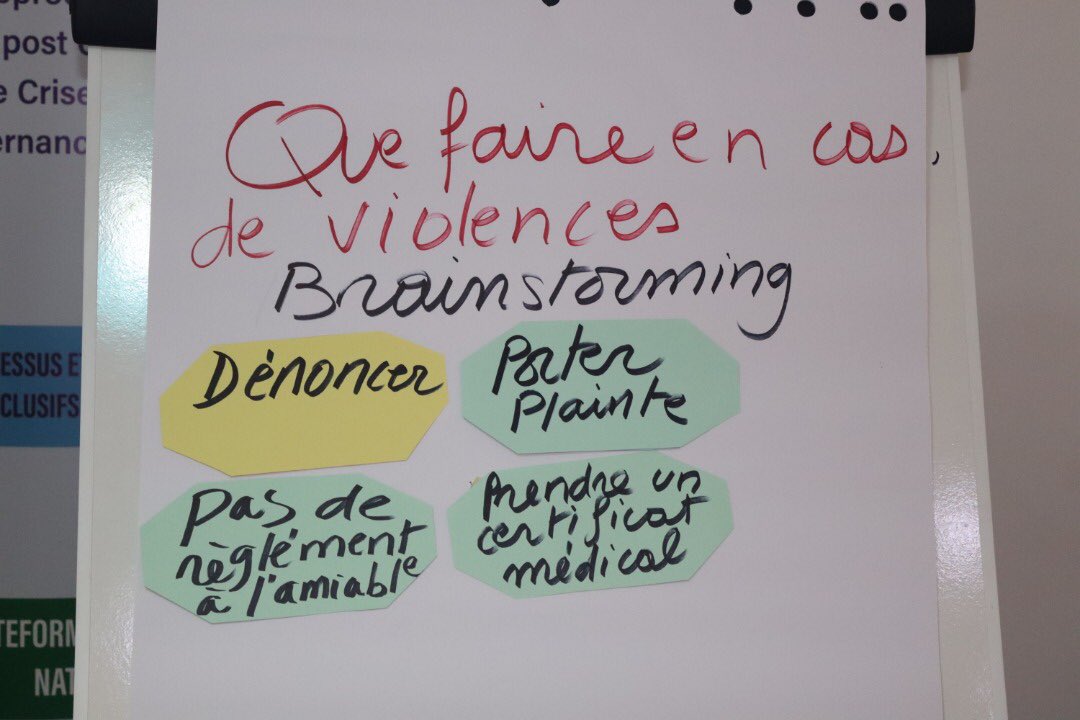 post
e Crise
ernanc
ESSUS ET
CLUSIFS
TEFORM
NAT
Que faire en cas,
de violences
Brainstorming
Dénoncer
Porter
Plainte
Pas de
règlément
à l'amiable
Prendre un
certificat
médical